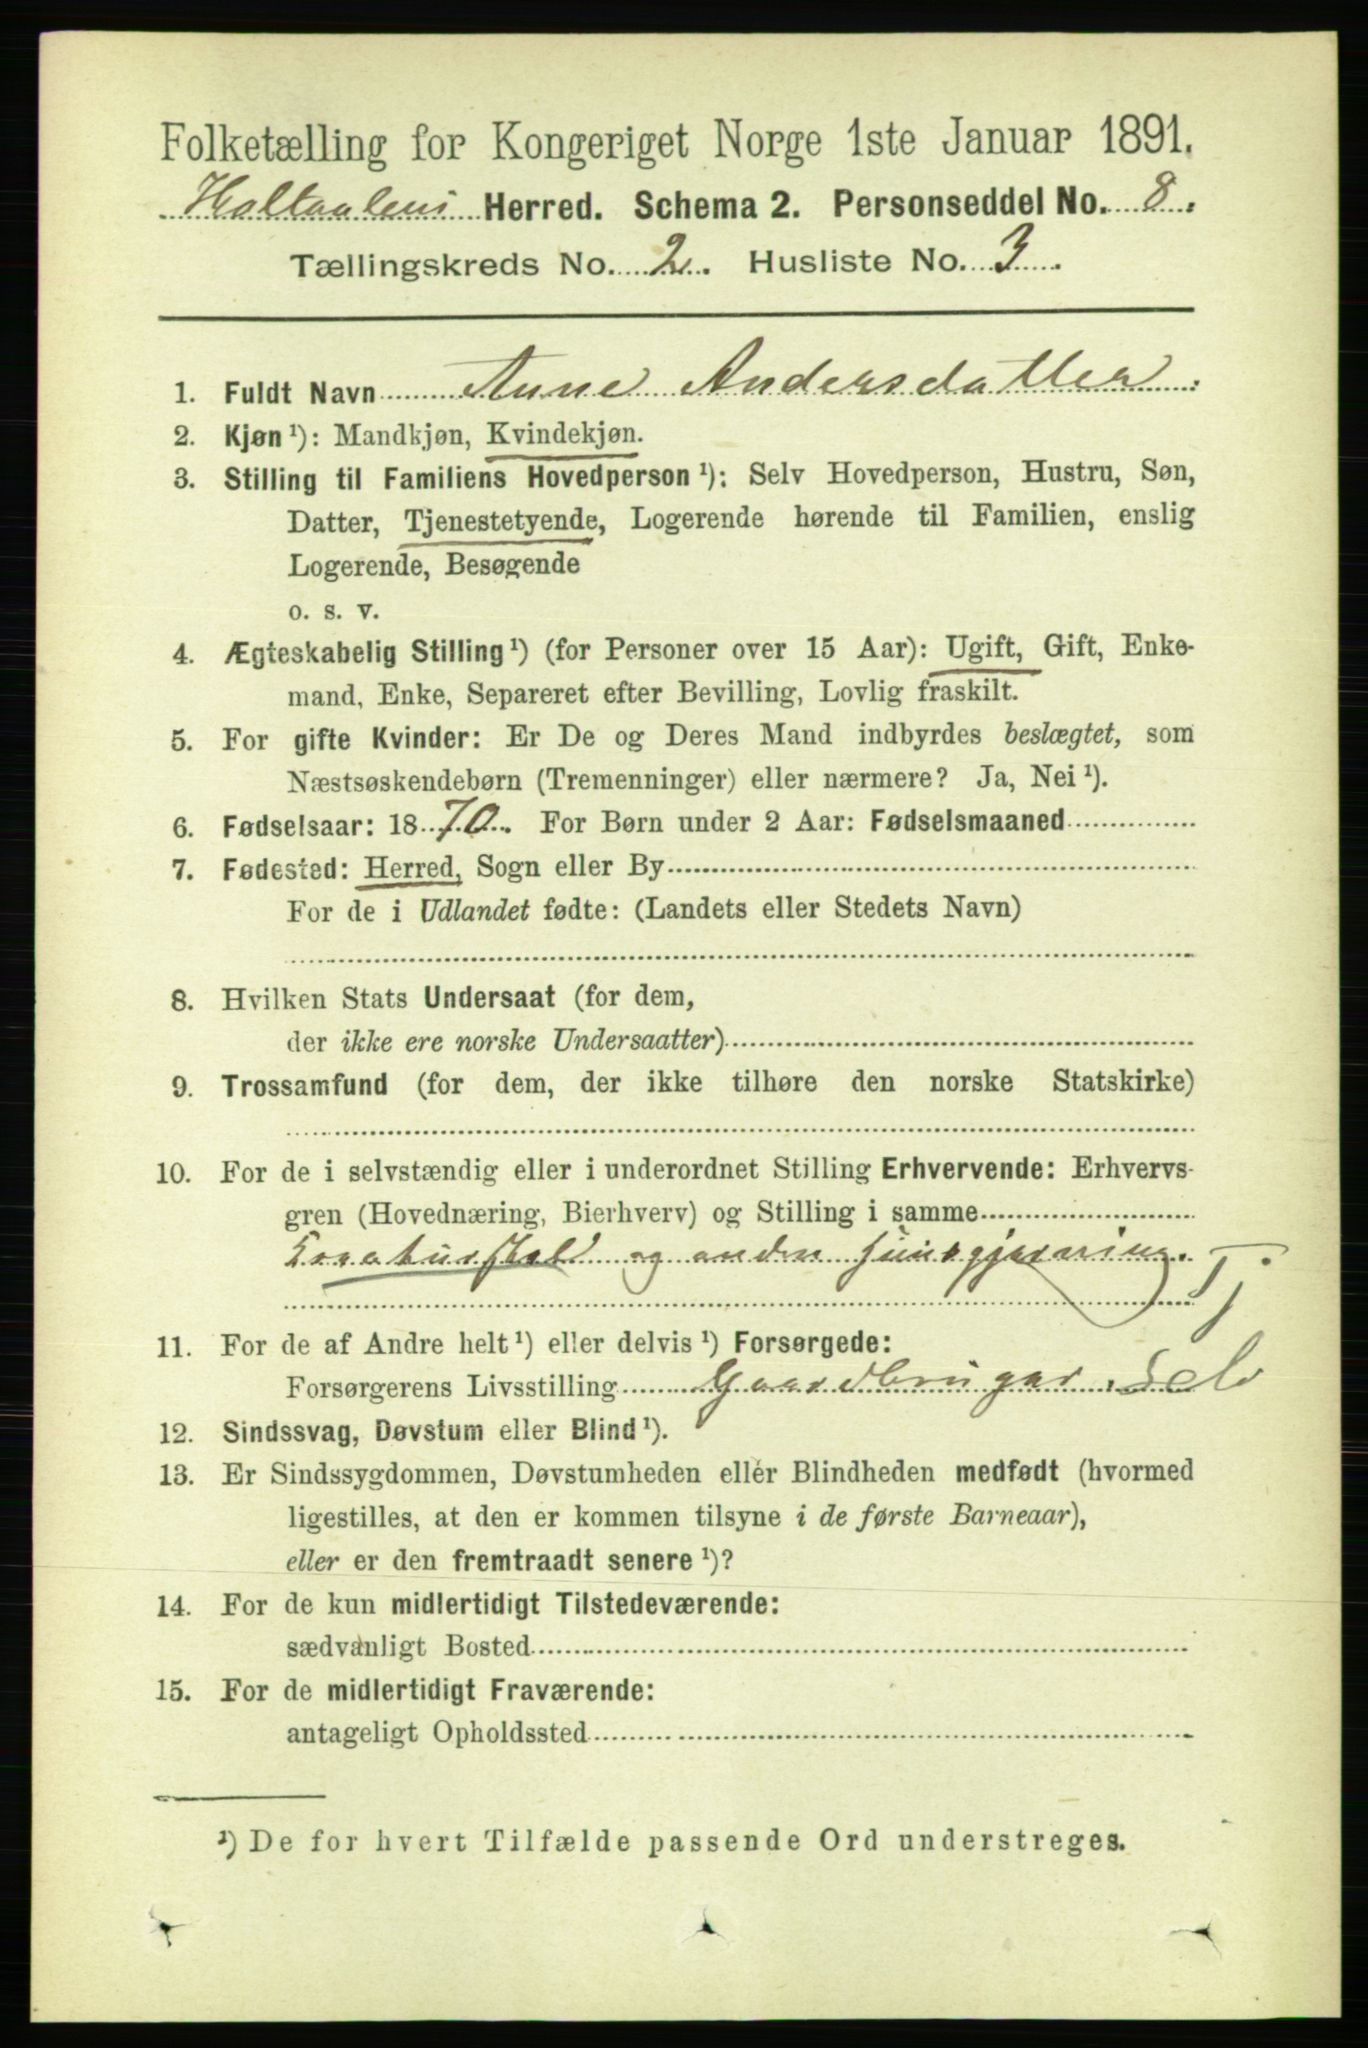 Folketælling for Kongeriget Norge 1ste Januar 1891.
Holtaalens Herred. Schema 2. Personseddel No. 8.
Tællingskreds No. 2. Husliste No. 3.
1. Fuldt Navn Anne Andersdatter.
2. Kjøn ¹): Mandkjøn, Kvindekjøn.
3. Stilling til Familiens Hovedperson ¹): Selv Hovedperson, Hustru, Søn,
Datter, Tjenestetyende, Logerende hørende til Familien, enslig
Logerende, Besøgende
o. s. v.
4. Ægteskabelig Stilling ¹) (for Personer over 15 Aar): Ugift, Gift, Enke-
mand, Enke, Separeret efter Bevilling, Lovlig fraskilt.
5. For gifte Kvinder: Er De og Deres Mand indbyrdes beslægtet, som
Næstsøskendebørn (Tremenninger) eller nærmere? Ja, Nei ¹).
6. Fødselsaar: 1870. For Børn under 2 Aar: Fødselsmaaned
7. Fødested: Herred, Sogn eller By
For de i Udlandet fødte: (Landets eller Stedets Navn)
8. Hvilken Stats Undersaat (for dem,
der ikke ere norske Undersaatter)
9. Trossamfund (for dem, der ikke tilhøre den norske Statskirke)
10. For de i selvstændig eller i underordnet Stilling Erhvervende: Erhvervs-
gren (Hovednæring, Bierhverv) og Stilling i samme
Kreaturstel og anden husgjerning. Tj
11. For de af Andre helt ¹) eller delvis ¹) Forsørgede:
Forsørgerens Livsstilling Gaardbruger. Selv
12. Sindssvag, Døvstum eller Blind ¹).
13. Er Sindssygdommen, Døvstumheden ellér Blindheden medfødt (hvormed
ligestilles, at den er kommen tilsyne i de første Barneaar),
eller er den fremtraadt senere ¹)?
14. For de kun midlertidigt Tilstedeværende:
sædvanligt Bosted
15. For de midlertidigt Fraværende:
antageligt Opholdssted
¹) De for hvert Tilfælde passende Ord understreges.